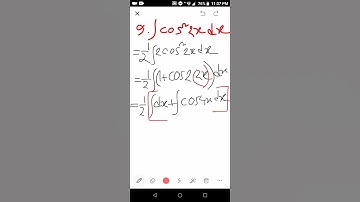 76% 11:07 PM
9. ∫cos²2x dx
= 1/2 ∫2cos²2x dx
= 1/2 ∫(1+cos2(2x)) dx
= 1/2 [∫dx+∫cos4x dx]